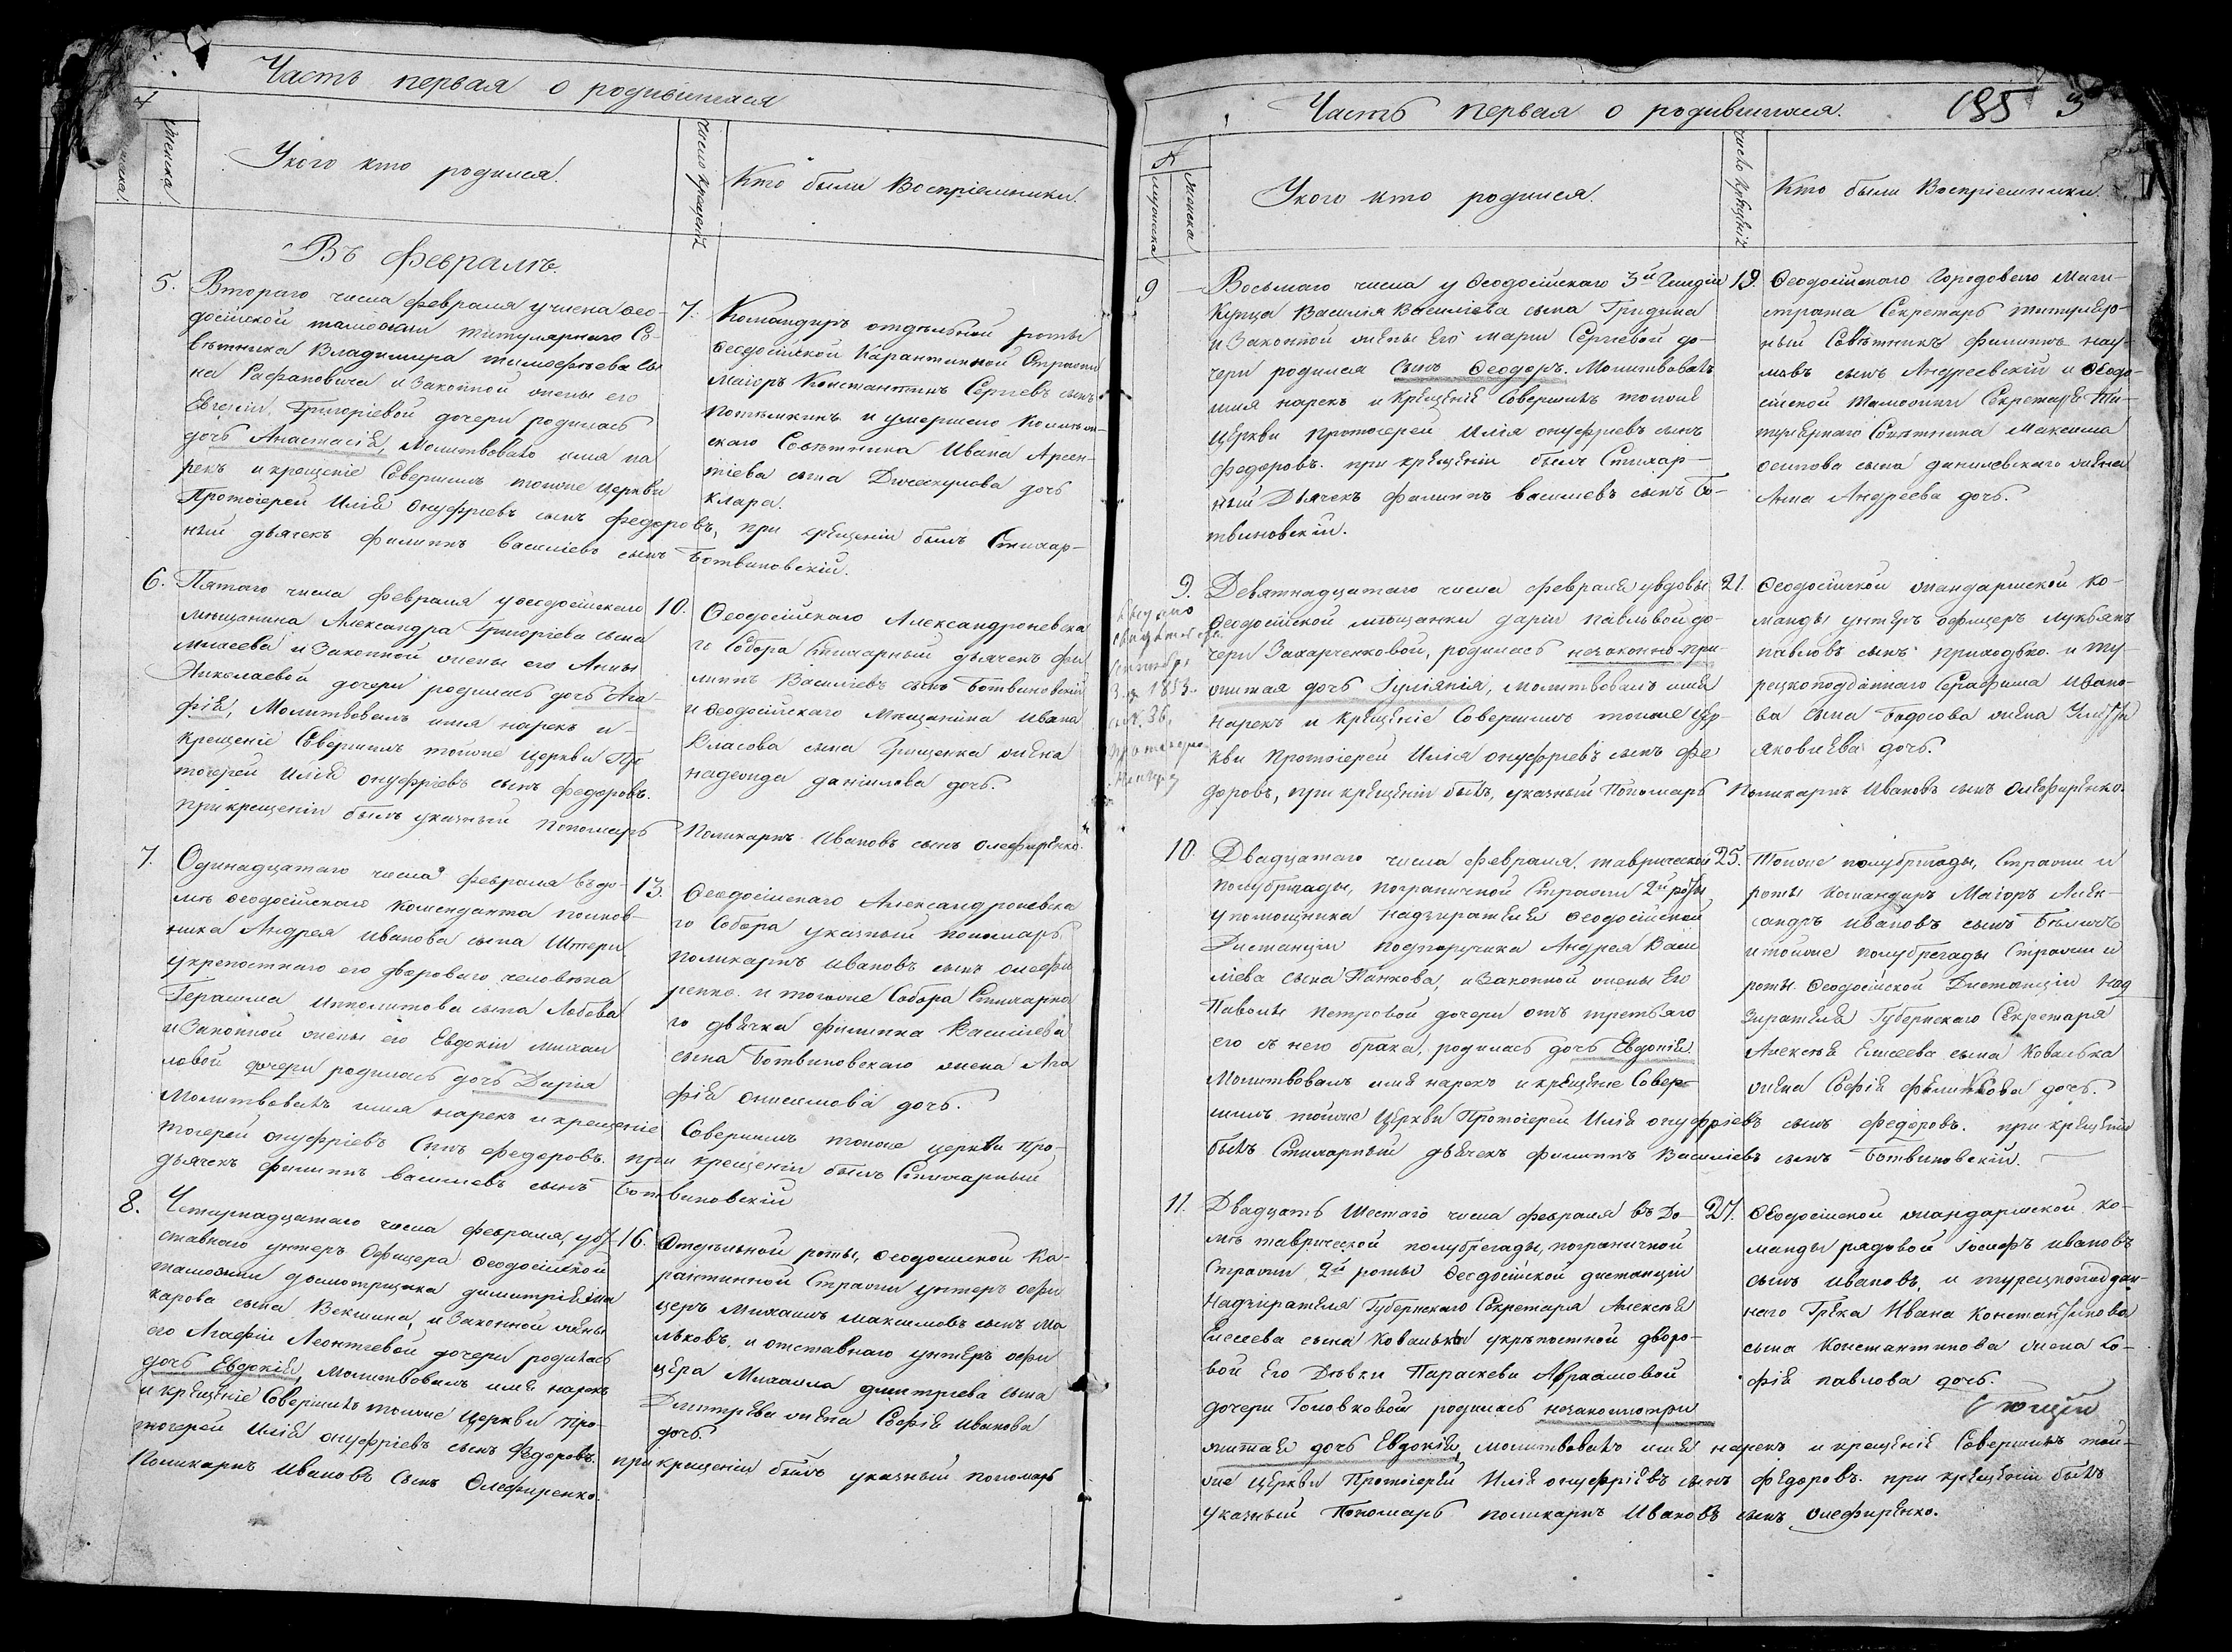 Часть первая о родившихся
№
мужеска
женска
У кого кто родился.
Число крещенія
Кто были Воспріемники.
Въ Февралѣ.
5.
Втораго числа февраля у члена Ѳео-
досійской таможни титулярнаго Со-
вѣтника Владимира Тимофѣева сы
на Рафановича и Законной жены его
Евгеніи Григоріевой дочери родилась
дочь Анастасія, Молитвовалъ имя на
рекъ и крещеніе Совершилъ тойже церкви
Протоіерей Илія Онуфріевъ сынъ Федоровъ, при крещеніи былъ Стихар-
ный дьячекъ Филиппъ Василіевъ сынъ Ботвиновскій.
7.
Командиръ отдѣльной роты
Ѳеодосійской Карантинной Стражи
Маіоръ Константинъ Сергѣевъ сынъ
Потемкинъ и умершаго Колежс-
скаго Совѣтника Ивана Арсен-
тіева сына дочь
Клара.
6.
Пятаго числа февраля у Ѳеодосійскаго
мѣщанина Александра Григоріева сына
и Законной жены его Анны
Николаевой дочери родилась дочь Ага-
фія, Молитвовалъ имя нарекъ и
крещеніе Совершилъ тойже Церкви Про
тоіерей Илія Онуфріевъ сынъ Федоровъ.
при крещеніи былъ указный Пономарь Поликарпъ Ивановъ сынъ Олефиренко.
10.
Ѳеодосійскаго Александроневска
го Собора Стихарный дьячекъ Фи
липпъ Василіевъ сынъ Ботвиновскій
и Ѳеодосійскаго Мѣщанина Ивана
Власова сына Грищенка жена
Надежда Даніилова дочь.
7.
Одинадцатаго числа февраля въ до-
мѣ Ѳеодосійскаго Коменданта полков-
ника Андрея Иванова сына Штери
у крепостнаго его двороваго человѣка
Герасима Ипполитова сына Лобова
и Законной жены его Евдокіи Михаи
ловой дочери родилась дочь Дарія
Молитвовалъ имя нарекъ и крещеніе Совершилъ тойже церкви Про-
тоіерей Онуфріевъ Сынъ Федоровъ. при крещеніи былъ Стихарный
дьячекъ Филиппъ Василіевъ сынъ Ботвиновскій
13.
Ѳеодосійскаго Александроневска
го Собора указный пономарь
Поликарпъ Ивановъ сынъ Олефи
ренко. и тогоже Собора Стихарна
го дьячка Филиппа Василіева
сына Ботвиновскаго жена Ага
фія Онисимова дочь.
8.
Четырнадцатаго числа февраля, у от-
ставнаго унтеръ Офицера Ѳеодосійской
таможни досмотрщика Димитрія Ма
карова сына Векшина, и Законной жены
его Агафіи Леонтіевой дочери родилась
дочь Евдокія, Молитвовалъ имя нарекъ
и крещеніе Совершилъ тойже Церкви Про-
тоіерей Илія Онуфріевъ сынъ Федоровъ. при крещеніи былъ указный пономарь
Поликарпъ Ивановъ Сынъ Олефиренко.
16.
Отдѣльной роты, Ѳеодосійской Ка-
рантинной Стражи унтеръ офи
церъ Михаилъ Максимовъ сынъ Ма
льковъ, и отставнаго унтеръ офи
цера Михаила Дмитріева сына
Дмитріева жена Софія Иванова
дочь.
Часть первая о родившихся.
185
5
№
мужеска
женска
У кого кто родился.
Число крещенія
Кто были Воспріемники.
9
Восьмаго числа у Ѳеодосійскаго 3й Гильдіи
Купца Василія Василіева сына Гридина
и Законной жены его Маріи Сергіевой до-
чери родился Сынъ Ѳеодоръ. Молитвовалъ
имя нарекъ и крещеніе Совершилъ тойже
Церкви Протоіерей Илія Онуфріевъ сынъ
Федоровъ. при крещеніи былъ Стихар-
ный Дьячекъ Филиппъ Василіевъ сынъ Бо-
твиновскій.
19.
Ѳеодосійскаго Городоваго Маги-
страта Секретарь титуляр-
ный Совѣтникъ Филиппъ Нау-
мовъ сынъ Андреевскій и Ѳеодо-
сійской Таможни Секретаря Ти-
тулярнаго Совѣтника Максима
Осипова сына Данилевскаго жена
Анна Андреева дочь.
9.
Выдано
1853.
№ 36.
Девятнадцатаго числа февраля у вдовы
Ѳеодосійской мѣщанки Даріи Павловой до-
чери Захарченковой, родилась незаконнопри-
житая дочь Іуліянія, молитвовалъ имя
нарекъ и крещеніе Совершилъ тойже Цер-
кви Протоіерей Илія Онуфріевъ сынъ Фе
доровъ, при крещеніи былъ, указный Пономарь Поликарпъ Ивановъ сынъ Олефиренко.
21.
Ѳеодосійской жандармской ко-
манды унтеръ офицеръ Лукьянъ
Павловъ сынъ Приходько. и ту-
рецкоподданнаго Серафима Ивано-
ва сына жена
Яковлева дочь.
10.
Двадцатаго числа февраля. таврической
полубригады, пограничной Стражи 2й роты
у помощника надзирателя Ѳеодосійской
Дистанціи подпоручика Андрея Васи
ліева сына Панкова, и Законной жены Его
Павлы Петровой дочери отъ третьяго
его съ нею брака, родилась дочь Евдокія
Молитвовалъ имя нарекъ и крещеніе Совер-
шилъ тойже Церкви Протоіерей Илія Онуфріевъ сынъ Федоровъ. при крещеніи
былъ Стихарный дьячекъ Филиппъ Василіевъ сынъ Ботвиновскій.
25.
Тойже полубригады, Стражи и
роты Командиръ Маіоръ Алек-
сандръ Ивановъ сынъ
и тойже полубригады Стражи и
роты Ѳеодосійской Дистанціи Над
зирателя Губернскаго Секретаря
Алексѣя Елисеева сына Ковалька
жена Софія Филиппова дочь.
11.
Двадцать Шестаго числа февраля въ До-
мѣ таврической полубригады, пограничной
Стражи 2й роты Ѳеодосійской дистанціи
Надзирателя Губернскаго Секретаря Алексѣя
Елисеева сына Ковалька у крѣпостной дворо-
вой Его Дѣвки Параскеви Авраамовой
дочери Головковой родилась незаконнопри
житая дочь Евдокія, молитвовалъ имя нарекъ и крещеніе Совершилъ той-
же Церкви Протоіерей Илія Онуфріевъ сынъ Федоровъ. при крещеніи былъ
указный Пономарь Поликарпъ Ивановъ сынъ Олефиренко.
27.
Ѳеодосійской жандармской ко-
манды рядовой Іосифъ Ивановъ
сынъ Ивановъ, и турецкоподдан-
наго Грека Ивана Константинова
сына Константинова жена Со-
фія Павлова дочь.